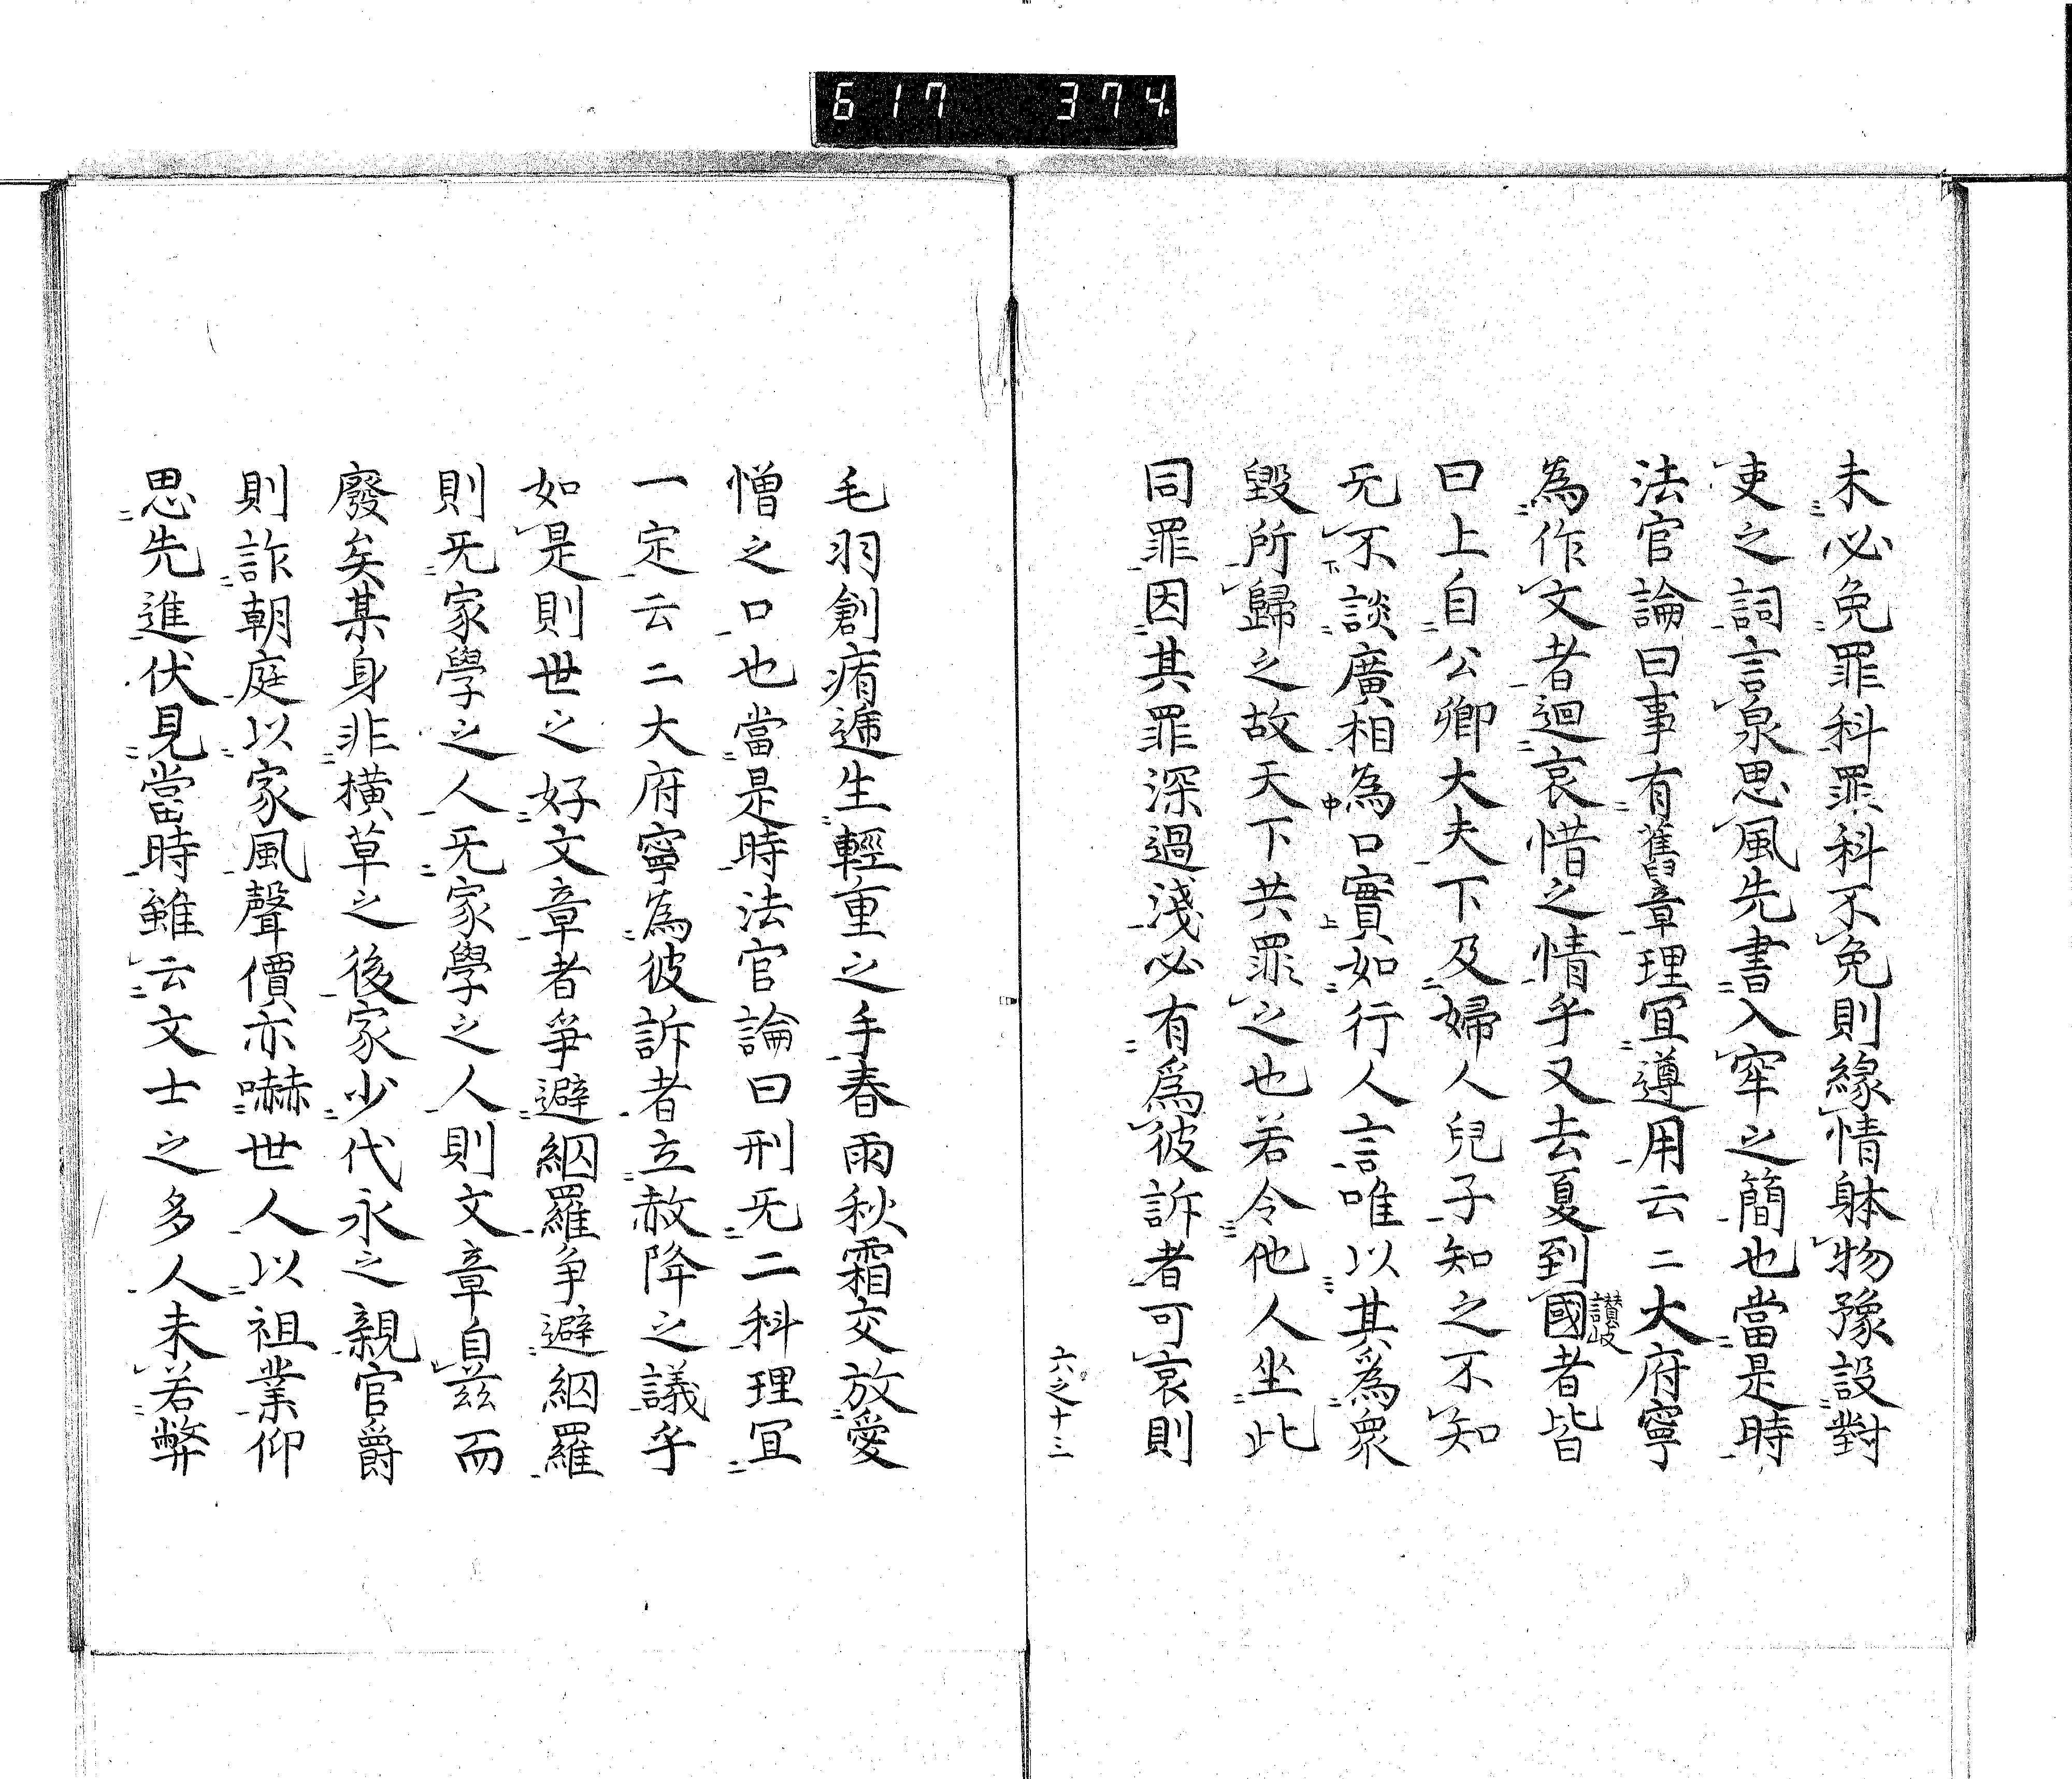 617 374
未必免罪科罪科不免則緣情躰物豫設對
吏之詞言泉思風先書入窂之簡也當是時
法官論曰事有舊章理冝遵用云二大府寧
為作文者迴哀惜之情乎又去夏到國者皆
讃岐
曰上自公卿大夫下及婦人兒子知之不知
无不談廣相為口實如行人言唯以其為衆
毀所歸之故天下共罪之也若令他人坐此
同罪因其罪深過淺必有為彼訴者可哀則
六之十三
毛羽創痏遞生輕重之手春雨秋霜交放愛
憎之口也當是時法官論曰刑无二科理冝
一定云二大府寧為彼訴者立赦降之議乎
如是則世之好文章者爭避綱羅爭避綱羅
則无家學之人无家學之人則文章自茲而
廢矣某身非橫草之後家少代永之親官爵
則詐朝庭以家風聲價亦嚇世人以祖業仰
思先進伏見當時雖云文士之多人未若弊